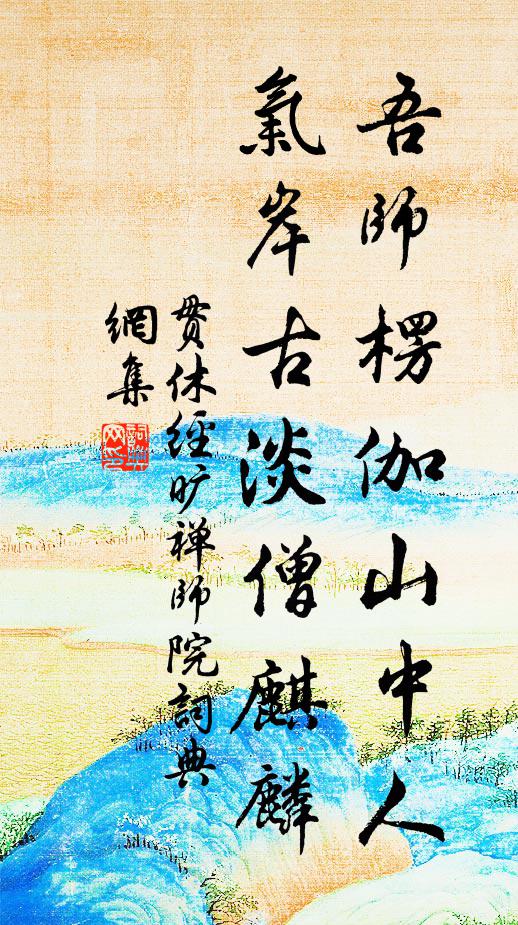 吾師楞伽山中人
氣岸古淡僧麒麟
贯休經旷禅師院詞典
網集